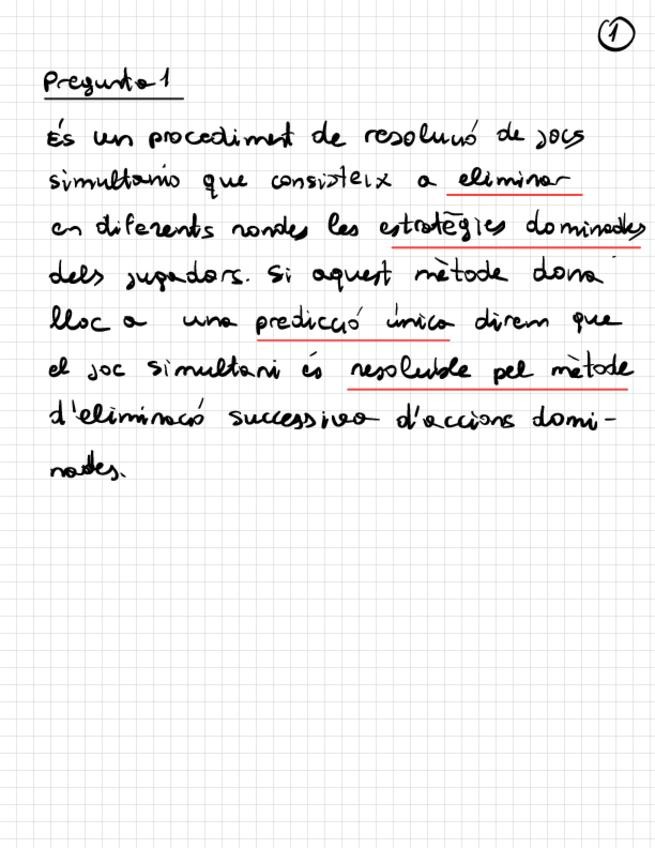 1
Pregunta 1
És un procediment de resolució de jocs
simultanis que consisteix a eliminar
en diferents rondes les estratègies dominades
dels jugadors. Si aquest mètode dona
lloc a una predicció única direm que
el joc simultani és resoluble pel mètode
d'eliminació successiva d'accions domi-
nades.